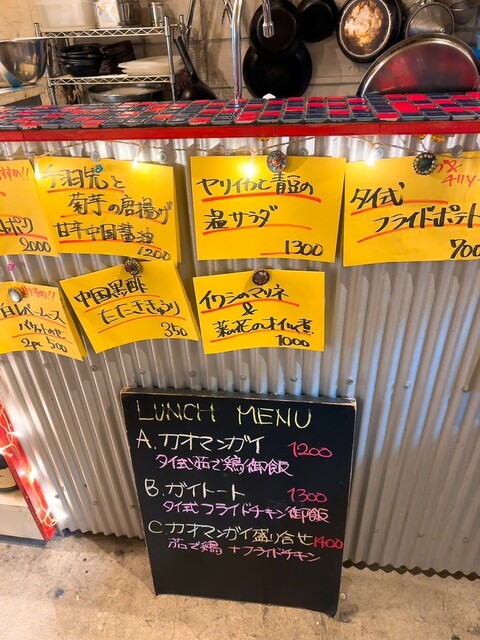 2000
手羽先と
菊芋の唐揚げ
甘辛中国醤油
1200
ヤリイカと青豆の
温サラダ
1300
タイ式
フライドポテト
700
白レバームース
バケット付き
2pc 500
中国黒酢
たたききゅうり
350
イワシのマリネ
&
菜の花のオイル煮
1000
LUNCH MENU
A. カオマンガイ 1200
タイ式茹で鶏御飯
B. ガイトート 1300
タイ式フライドチキン御飯
C. カオマンガイ盛り合せ 1400
茹で鶏 + フライドチキン